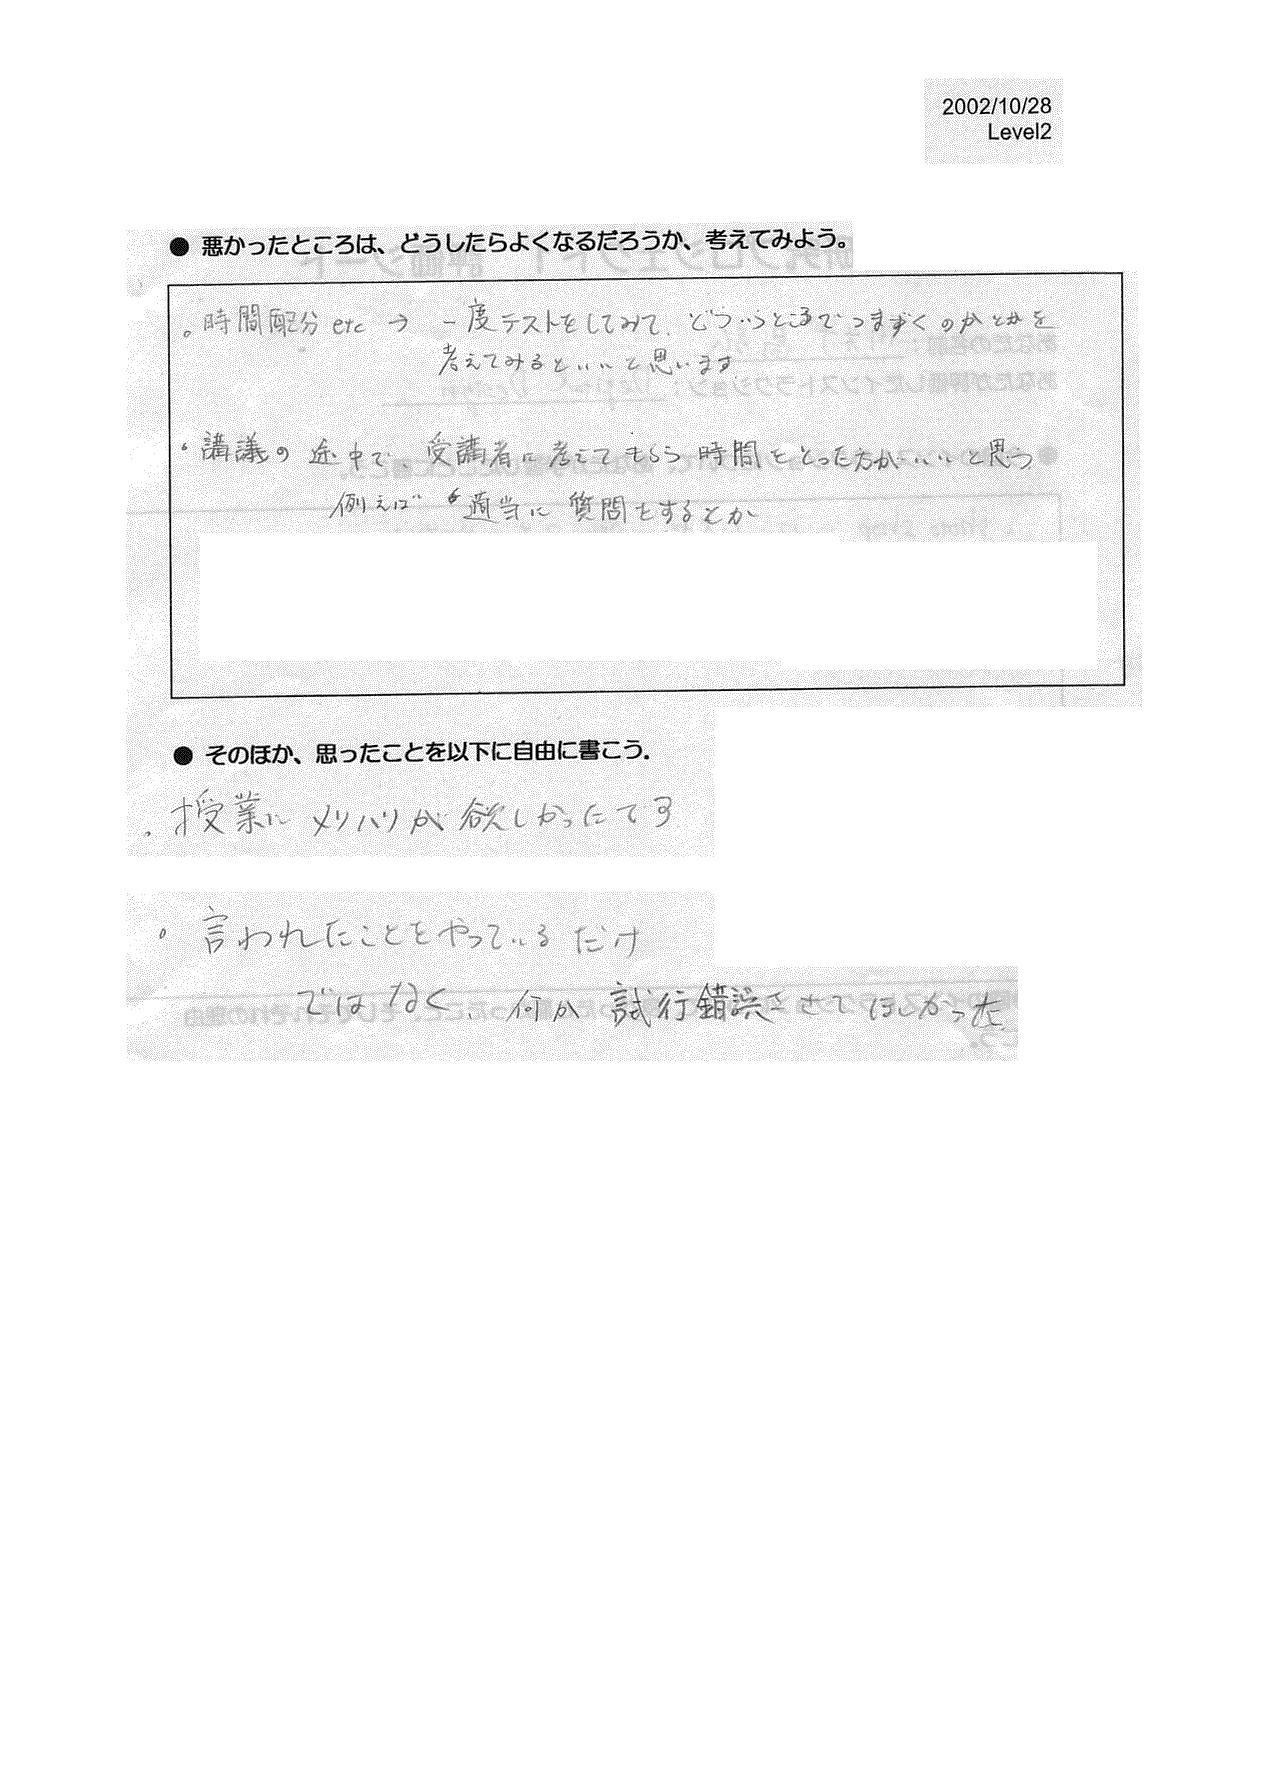 2002/10/28
Level2
● 悪かったところは、どうしたらよくなるだろうか、考えてみよう。
。時間配分 etc → 一度テストをしてみて、どういうところでつまずくのかとかを
考えてみるといいと思います
・講議の 途中で 受講者に考えてもらう時間をとった方がいいと思う
例えば 適当に質問をするとか
● そのほか、思ったことを以下に自由に書こう.
。授業に メリハリが欲しかったです
。言われたことをやっているだけ
ではなく、何か 試行錯誤させてほしかった